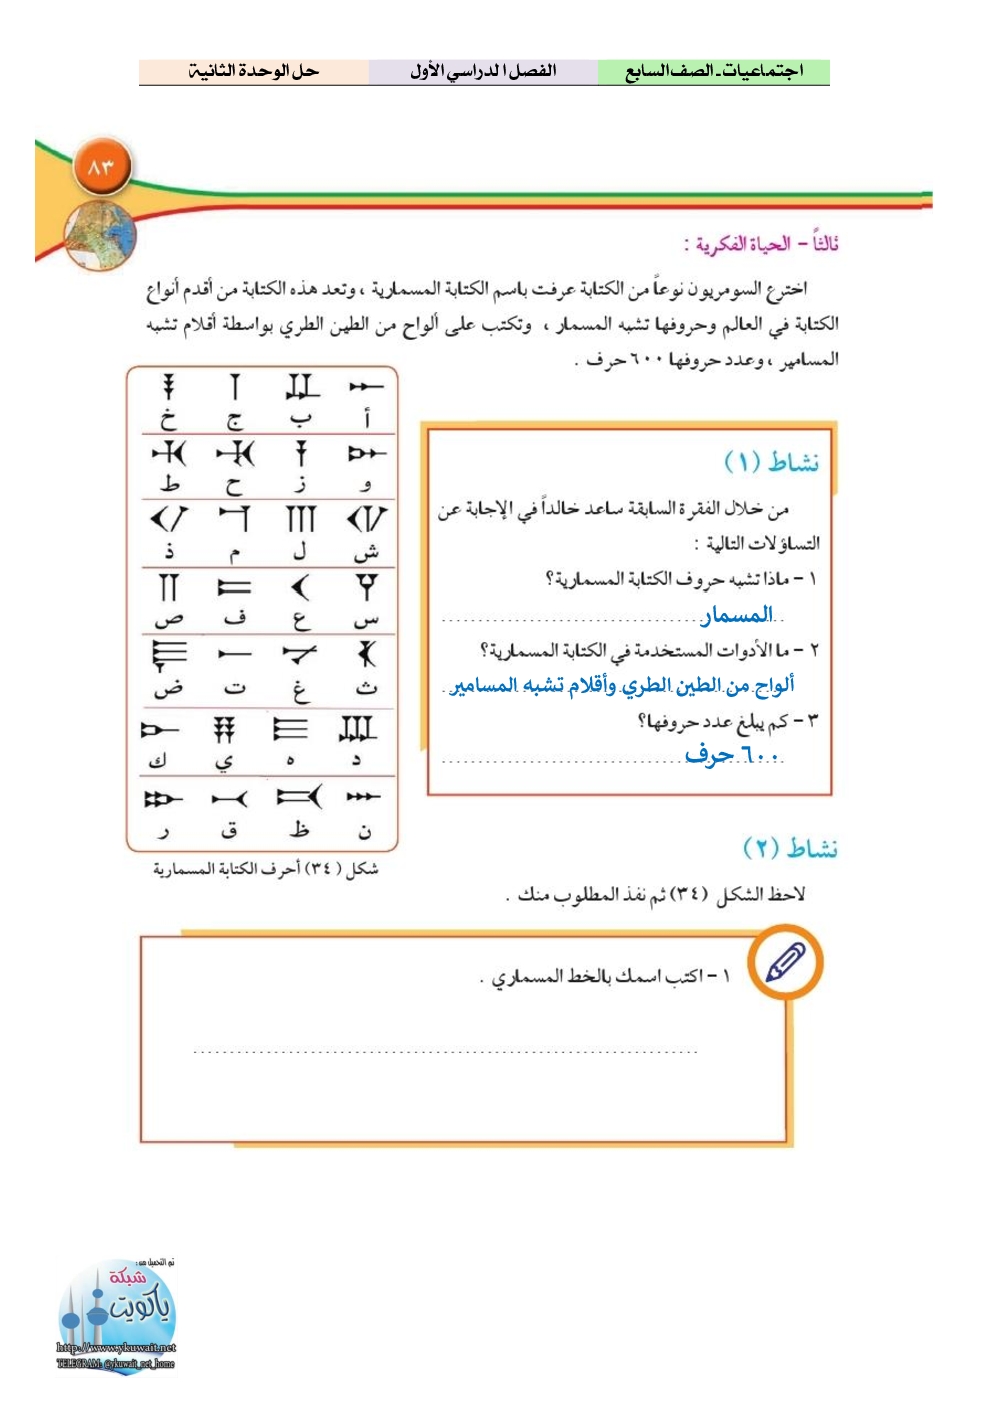 اجتماعيات - الصف السابع
الفصل الدراسي الأول
حل الوحدة الثانية
٨٣
ثالثاً - الحياة الفكرية :
اخترع السومريون نوعاً من الكتابة عرفت باسم الكتابة المسمارية ، وتعد هذه الكتابة من أقدم أنواع
الكتابة في العالم وحروفها تشبه المسمار ، وتكتب على ألواح من الطين الطري بواسطة أقلام تشبه
المسامير ، وعدد حروفها ٦٠٠ حرف .
نشاط (١)
من خلال الفقرة السابقة ساعد خالداً في الإجابة عن
التساؤلات التالية :
١ - ماذا تشبه حروف الكتابة المسمارية؟
المسمار
٢ - ما الأدوات المستخدمة في الكتابة المسمارية؟
ألواح من الطين الطري وأقلام تشبه المسامير
٣ - كم يبلغ عدد حروفها؟
٦٠٠ حرف
أ ب ج خ
و ز ح ط
ش ل م ذ
س ع ف ص
ث غ ت ض
د ه ي ك
ن ظ ق ر
شكل (٣٤) أحرف الكتابة المسمارية
نشاط (٢)
لاحظ الشكل (٣٤) ثم نفذ المطلوب منك .
١ - اكتب اسمك بالخط المسماري .
تم التحميل من :
شبكة
ياكويت
http://www.ykuwait.net
TELEGRAM: @ykuwait_net_home